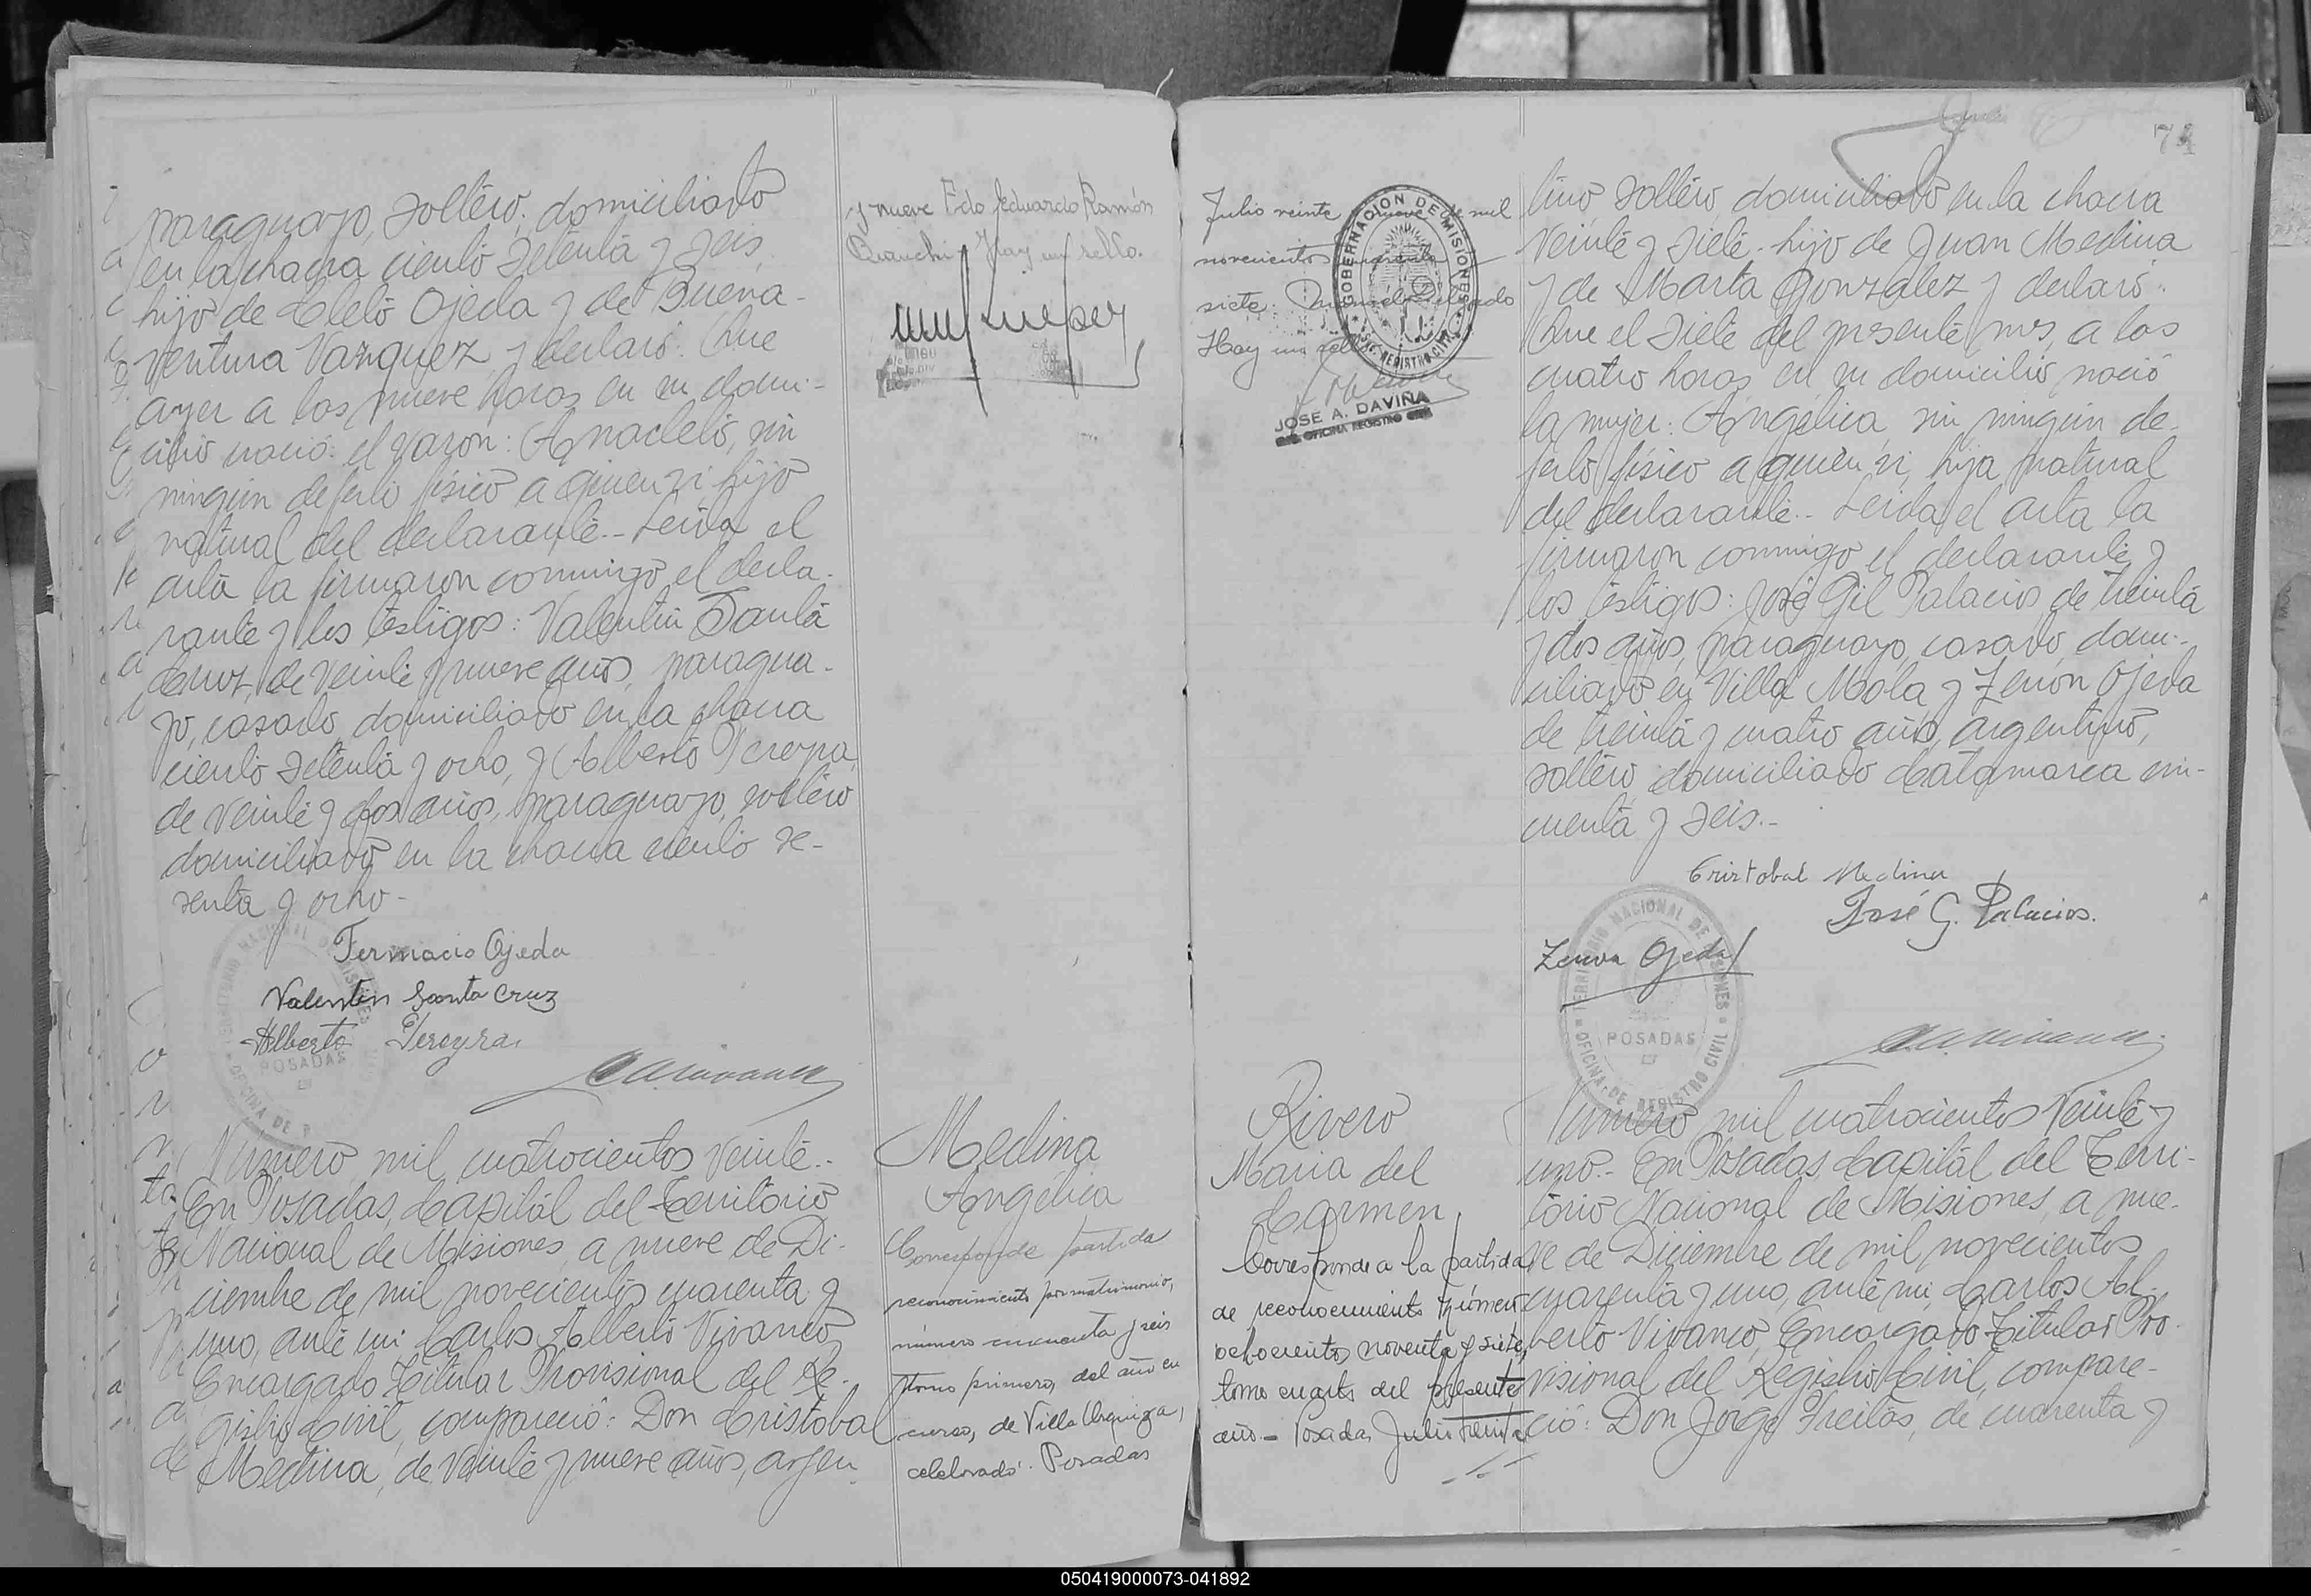 paraguayo, soltero, domiciliado
en la chacra ciento setenta y seis,
hijo de Cleto Ojeda y de Buena-
ventura Vazquez, y declaró: Que
ayer a las nueve horas en su domi-
cilio nació: el varon: Anacleto, sin
ningún defecto físico a quien vi, hijo
natural del declarante.- Leída el
acta la firmaron conmigo el decla-
rante y los testigos: Valentin Santa
Cruz, de veinte y nueve años, paragua-
yo, casado, domiciliado en la chacra
ciento setenta y ocho, y Alberto Pereyra,
de veinte y dos años, paraguayo, soltero
domiciliado en la chacra ciento se-
senta y ocho-
Fermacio Ojeda
Valentin Santa Cruz
Alberto Pereyra
POSADAS
Número mil cuatrocientos veinte.-
En Posadas, Capital del Territorio
Nacional de Misiones, a nueve de Di-
ciembre de mil novecientos cuarenta y
uno, ante mi Carlos Alberto Vivanco,
Encargado Titular Provisional del Re-
gistro Civil, compareció: Don Cristobal
Medina, de veinte y nueve años, argen
y nueve Fdo Eduardo Ramón
Bianchi. Hay un sello.
Medina
Angélica
Corresponde partida
reconocimiento por matrimonio,
número cincuenta y seis
tomo primero, del año en
curso, de Villa Urquiza,
celebrado. Posadas
Julio veinte y nueve de mil
novecientos cuarenta
siete.
Hay un sello
GOBERNACION DE MISIONES
REGISTRO CIVIL
JOSE A. DAVIÑA
OFICINA REGISTRO CIVIL
Rivero
Maria del
Carmen
Corresponde a la partida
de reconocimiento número
ochocientos noventa y siete,
tomo cuarto del presente
año.- Posadas, Julio treinta
74
tino soltero, domiciliado en la chacra
veinte y siete. hijo de Juan Medina
y de Marta Gonzalez y declaró:
Que el siete del presente mes, a las
cuatro horas en su domicilio nació
la mujer: Angélica, sin ningún de-
fecto físico a quien vi, hija natural
del declarante.- Leída el acta la
firmaron conmigo el declarante y
los testigos: José Gil Palacios, de treinta
y dos años, paraguayo, casado, domi-
ciliado en Villa Mola, y Zenón Ojeda
de treinta y cuatro años, argentino,
soltero, domiciliado Catamarca cin-
cuenta y seis.-
Cristobal Medina
José G. Palacios.
Zenon Ojeda
TERRITORIO NACIONAL DE MISIONES
POSADAS
OFICINA DE REGISTRO CIVIL
Número mil cuatrocientos veinte y
uno.- En Posadas, Capital del Terri-
torio Nacional de Misiones, a nue-
ve de Diciembre de mil novecientos
cuarenta y uno, ante mi, Carlos Al-
berto Vivanco, Encargado Titular Pro-
visional del Registro Civil, compare-
ció: Don Jorge Freitas, de cuarenta y
050419000073-041892